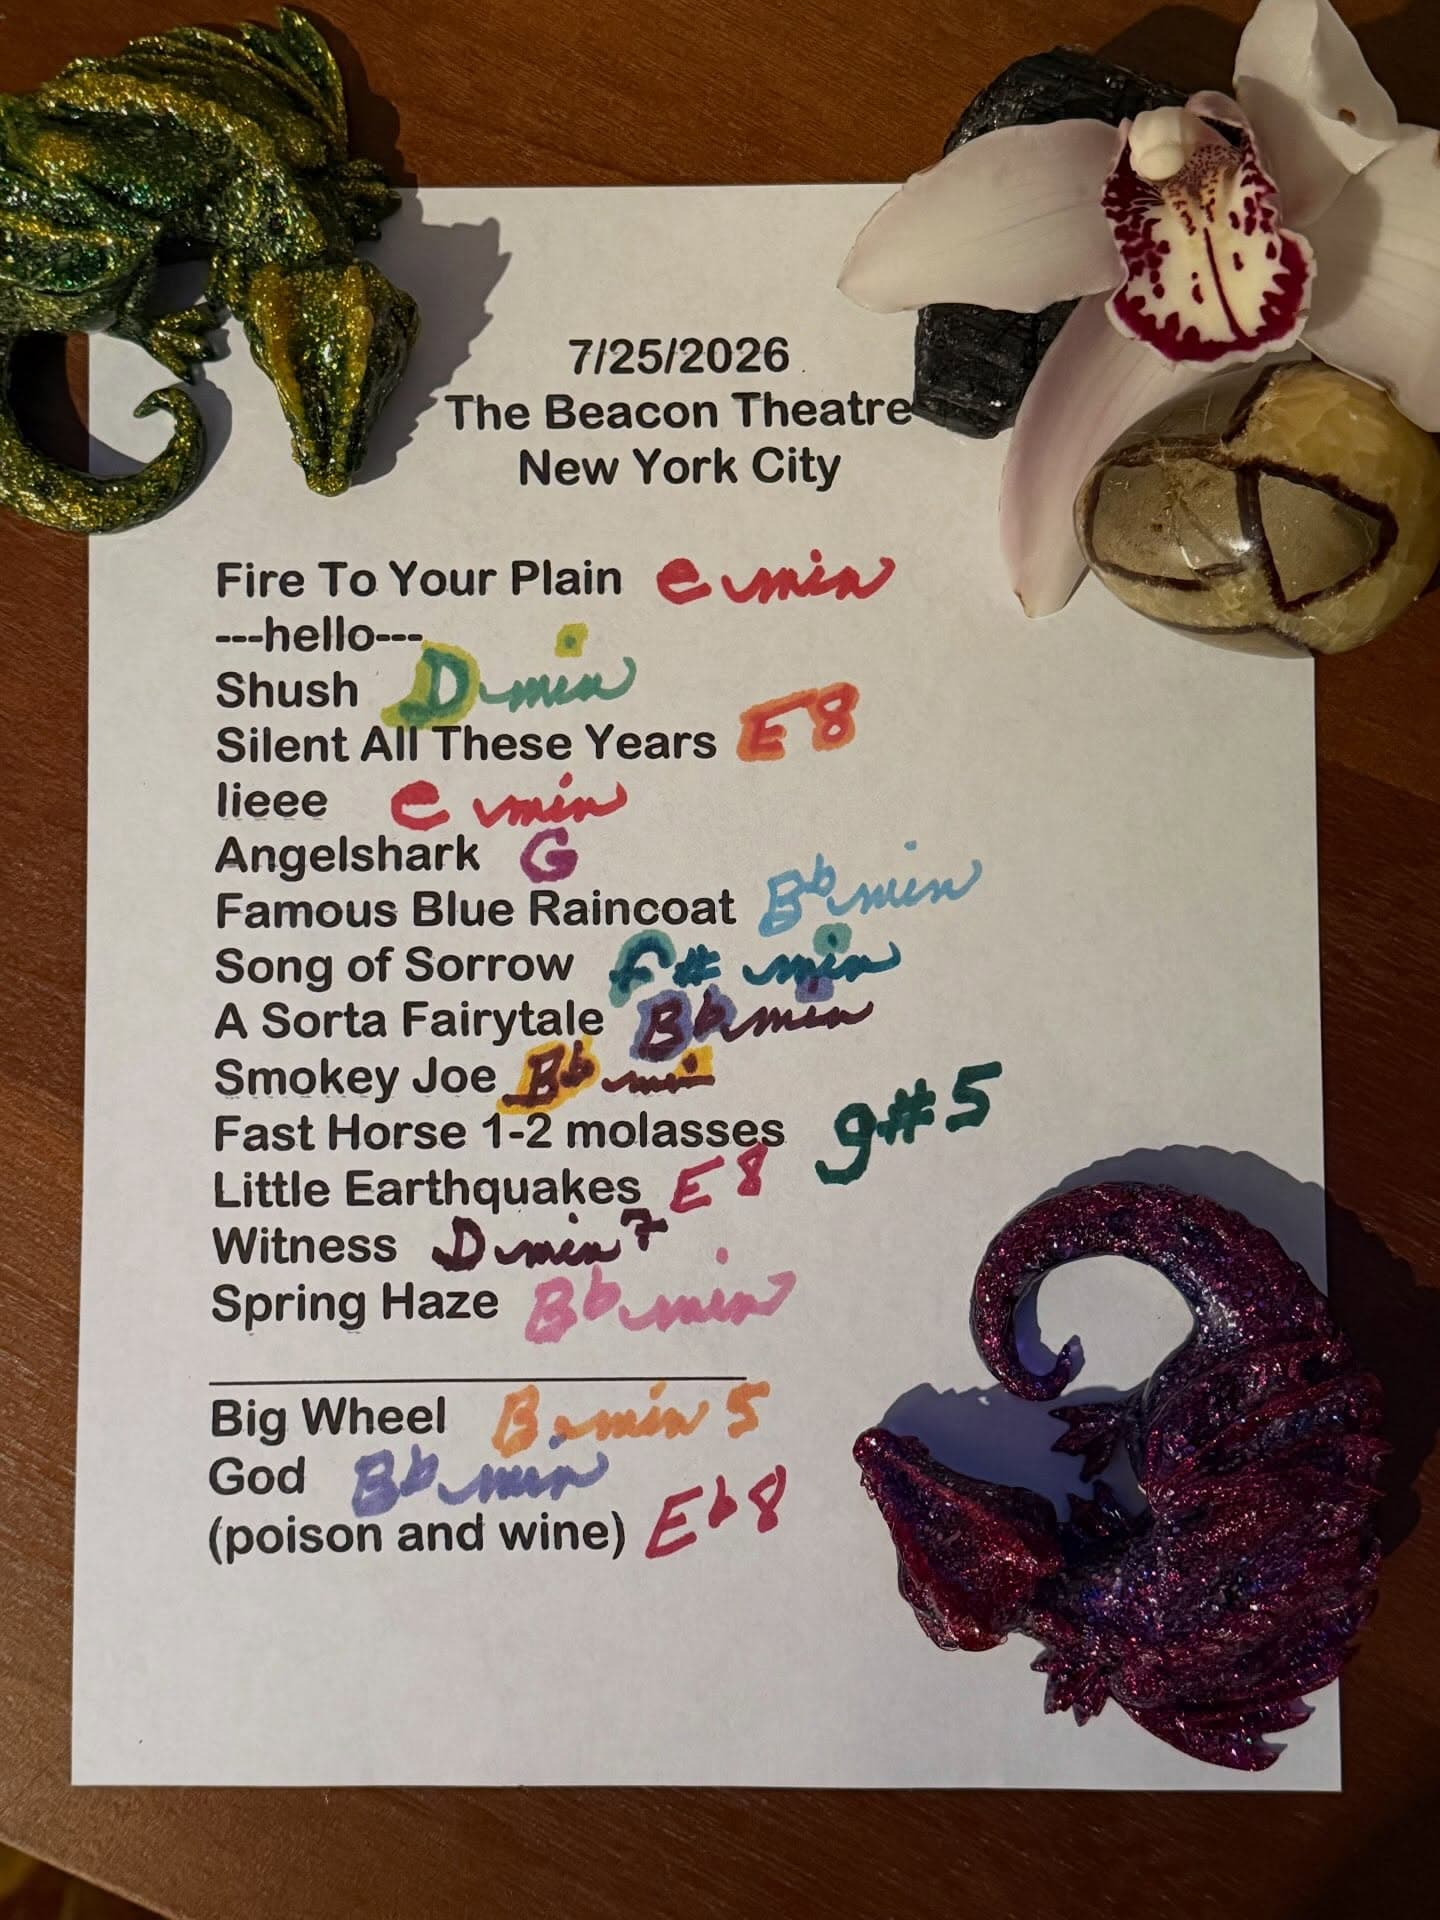 7/25/2026
The Beacon Theatre
New York City
Fire To Your Plain e min
---hello---
Shush D min
Silent All These Years E 8
Iieee e min
Angelshark G
Famous Blue Raincoat Bb min
Song of Sorrow f# min
A Sorta Fairytale Bb min
Smokey Joe Bb min
Fast Horse 1-2 molasses g#5
Little Earthquakes E 8
Witness D min 7
Spring Haze Bb min
Big Wheel B min 5
God Bb min
(poison and wine) Eb 8